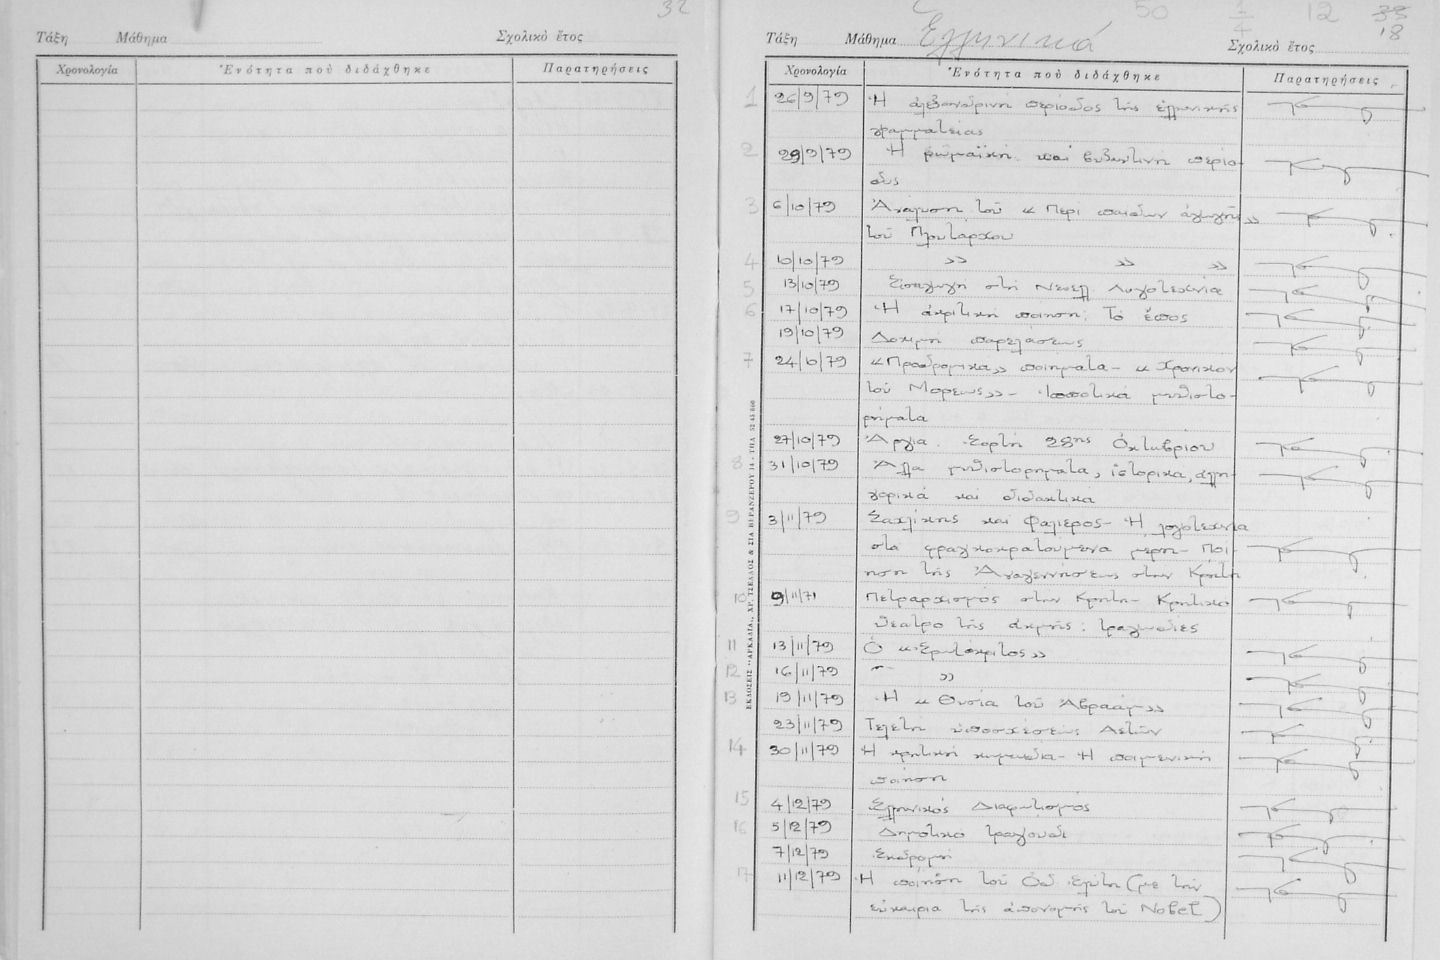 32
Τάξη Μάθημα Σχολικὸ ἔτος
Χρονολογία Ἑνότητα ποὺ διδάχθηκε Παρατηρήσεις
50 1/4 12 33
18
Τάξη Μάθημα Ἑλληνικά Σχολικὸ ἔτος
Χρονολογία Ἑνότητα ποὺ διδάχθηκε Παρατηρήσεις
1 26/9/79 Ἡ ἀλεξανδρινή περίοδος τῆς ἑλληνικῆς
γραμματείας
2 29/9/79 Ἡ ρωμαϊκή καί βυζαντινή περίο-
δος
3 6/10/79 Ἀνάλυση τοῦ « Περί παίδων ἀγωγῆς »
τοῦ Πλουτάρχου
4 10/10/79 » » »
5 13/10/79 Εἰσαγωγή στή Νεοελλ Λογοτεχνία
6 17/10/79 Ἡ ἀκριτική ποίηση; Τό ἔπος
19/10/79 Δοκιμή παρελάσεως
7 24/10/79 «Προδρομικά» ποιήματα - « Χρονικόν
τοῦ Μορέως» - Ἱπποτικά μυθιστο-
ρήματα
27/10/79 Ἀργία. Ἑορτή 28ης Ὀκτωβρίου
8 31/10/79 Ἄλλα μυθιστορήματα, ἱστορικά, ἀλλη-
γορικά και διδακτικά
9 3/11/79 Σαχλίκης και Φαλιέρος - Ἡ λογοτεχνία
στα φραγκοκρατούμενα μέρη - Ποί-
ηση τῆς Ἀναγεννήσεως στην Κρήτη
10 9/11/71 Πετραρχισμός στην Κρήτη - Κρητικό
Θέατρο τῆς ἀκμῆς: τραγωδίες
11 13/11/79 Ὁ «Ἐρωτόκριτος»
12 16/11/79 »
13 19/11/79 Ἡ « Θυσία τοῦ Ἀβραάμ»
23/11/79 Τελετή ὑποσχέσεως Ἀετῶν
14 30/11/79 Ἡ κρητική κωμωδία - Ἡ ποιμενική
ποίηση
15 4/12/79 Ἑλληνικός Διαφωτισμός
16 5/12/79 Δημοτικό τραγούδι
7/12/79 Ἐκδρομή
17 11/12/79 Ἡ ποίηση τοῦ Ὀδ. Ἐλύτη (με τήν
εὐκαιρία τῆς ἀπονομῆς τοῦ Nobel)
ΕΚΔΟΣΕΙΣ "ΑΡΚΑΔΙΑ,, ΧΡ. ΤΣΕΛΛΟΣ & ΣΙΑ ΒΕΡΑΝΖΕΡΟΥ 14 - ΤΗΛ. 52 45 860